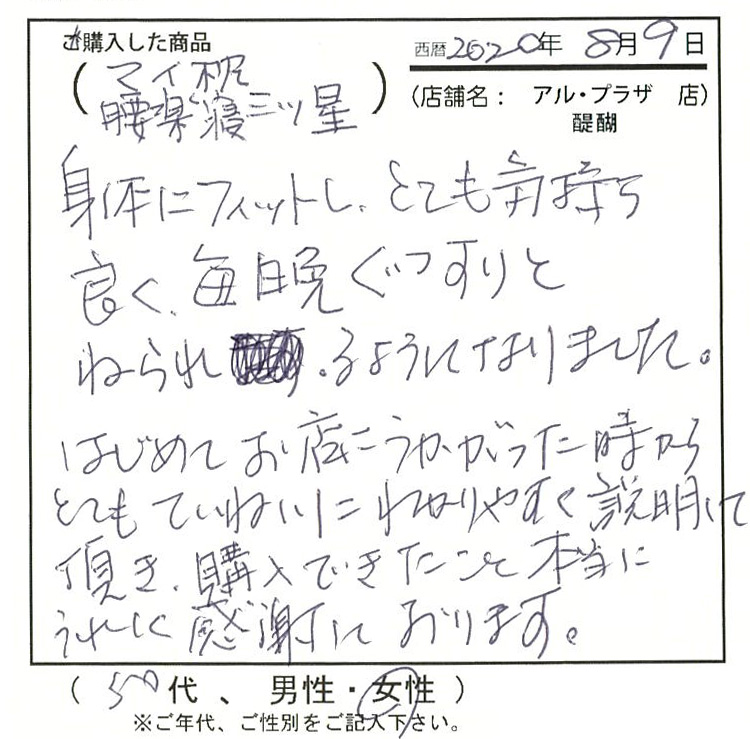 ご購入した商品
西暦2020年 8月9日
(マイ枕
腰楽寝三ツ星)
(店舗名： アル・プラザ 店)
醍醐
身体にフィットし、とても気持ち
良く、毎日晩ぐっすりと
ねられ るようになりました。
はじめてお店にうかがった時から
とてもていねいにわかりやすく説明して
頂き、購入できたこと本当に
うれしく感謝しております。
(50代、男性・女性)
※ご年代、ご性別をご記入下さい。